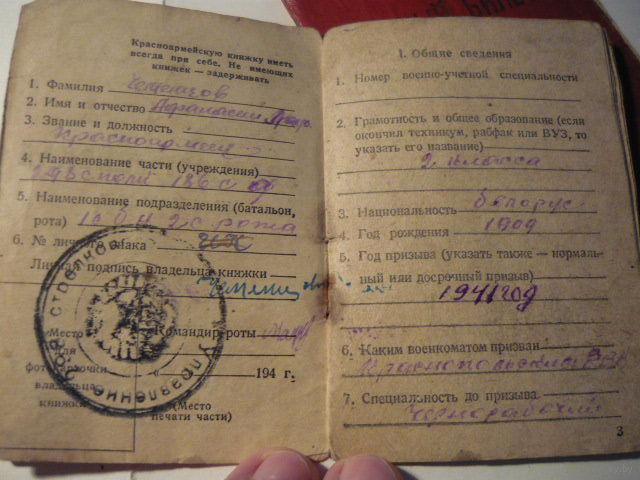 Красноармейскую книжку иметь
всегда при себе. Не имеющих
книжек — задерживать
1. Фамилия
2. Имя и отчество Афанасий
3. Звание и должность
Красноармеец
4. Наименование части (учреждения)
5. Наименование подразделения (батальон,
рота) рота
6. № личного знака
Личная подпись владельца книжки
Командир роты
Место
для
фотокарточки
владельца
книжки
« 194 г.
(Место
печати части)
Управление
стрелков
1. Общие сведения
1. Номер военно-учетной специальности
2. Грамотность и общее образование (если
окончил техникум, рабфак или ВУЗ, то
указать его название)
2 класса
3. Национальность белорус
4. Год рождения 1909
5. Год призыва (указать также — нормаль-
ный или досрочный призыв)
1941 год
6. Каким военкоматом призван
Краснопольским РВК
7. Специальность до призыва
Чернорабочий
3